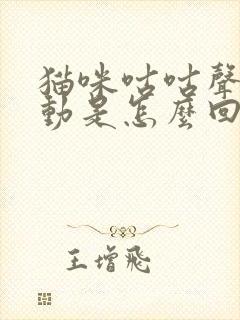 猫咪咕咕聲
動是怎麼回
王增飛